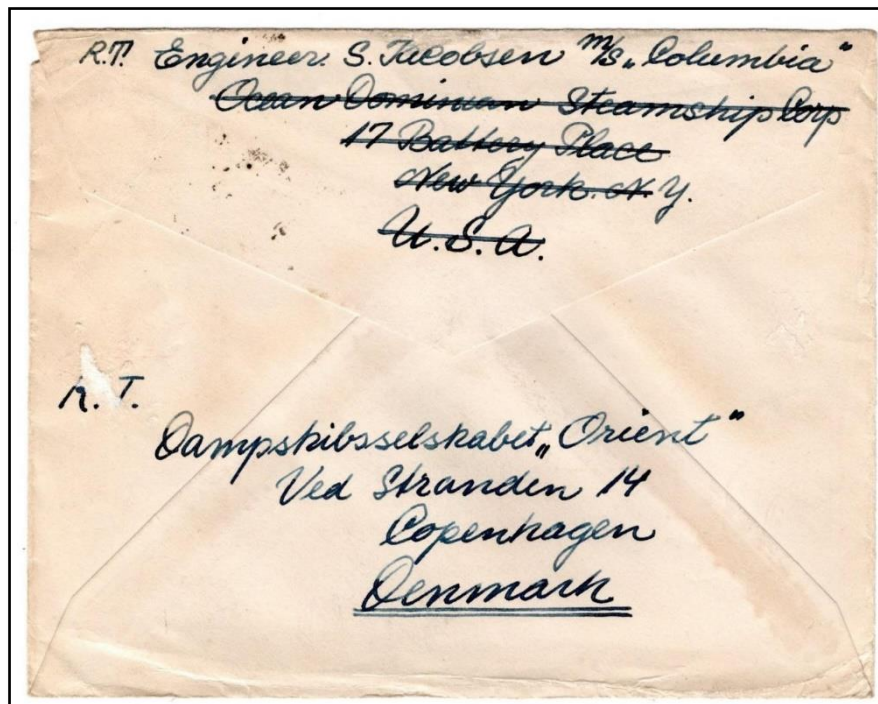 R.T. Engineer. S. Jacobsen M/S „Columbia“
Ocean Dominian Steamship Corp
17 Battery Place
New York. N.Y.
U.S.A.
R.T.
Dampskibsselskabet „Orient“
Ved Stranden 14
Copenhagen
Denmark